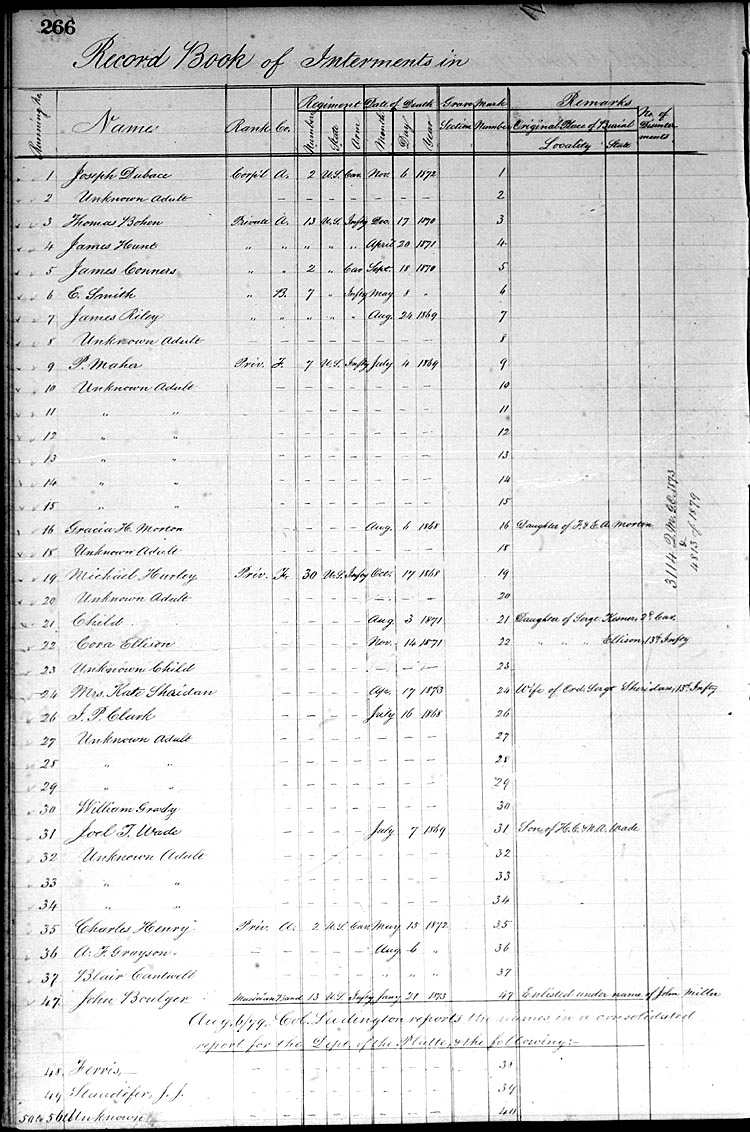 266
Record Book of Interments in
Running No. Names Rank Co. Regiment Date of Death Grave Mark Remarks No. of Disinterments
Number State Arm Month Day Year Section Number Original Place of Burial
Locality State
1 Joseph Dubace Corp'l A. 2 U.S. Cav. Nov. 6 1872 1
2 Unknown Adult — — — — — — 2
3 Thomas Bohen Private A. 13 U.S. Infty Dec. 17 1870 3
4 James Hunt " " " " " April 20 1871 4
5 James Conners " " 2 " Cav Sept. 18 1870 5
6 E. Smith " B. 7 " Infty May 8 " 6
7 James Riley " " " " " Aug. 24 1869 7
8 Unknown Adult — — — — — — 8
9 P. Maher Priv. F. 7 U.S. Infty July 4 1869 9
10 Unknown Adult — — — — — — 10
11 " " — — — — — — 11
12 " " — — — — — — 12
13 " " — — — — — — 13
14 " " — — — — — — 14
15 " " — — — — — — 15
16 Gracia H. Morton — — — Aug. 6 1868 16 Daughter of F. & E. A. Morton
18 Unknown Adult — — — — — — 18
19 Michael Hurley Priv. F. 30 U.S. Infty Oct. 17 1868 19
20 Unknown Adult — — — — — — 20
21 Child — — — Aug. 3 1871 21 Daughter of Sergt. Kesner, 2d Cav.
22 Cora Ellison — — — Nov. 14 1871 22 " " " Ellison, 13th Infty
23 Unknown Child — — — — — — 23
24 Mrs. Kate Sheridan — — — Apr. 17 1873 24 Wife of Ord. Sergt Sheridan, 13th Infty
26 J. P. Clark — — — July 16 1868 26
27 Unknown Adult — — — — — — 27
28 " " — — — — — — 28
29 " " — — — — — — 29
30 William Grady — — — — — — 30
31 Joel T. Wade — — — July 7 1869 31 Son of H. C. & M. A. Wade
32 Unknown Adult — — — — — — 32
33 " " — — — — — — 33
34 " " — — — — — — 34
35 Charles Henry Priv. A. 2 U.S. Cav. May 13 1872 35
36 A. F. Grayson. — — — — — Aug. 6 " 36
37 Blair Cantwell — — — — " " " 37
47 John Boulger Musician Band 13 U.S. Infty Jany 21 1873 47 Enlisted under name of John Miller
Aug. 6/79, Col. Ludington reports the names in a consolidated
report for the Dept. of the Platte, & the following:—
48 Ferris, — — — — — — — 38
49 Standifer, J. J. — — — — — — 39
50 to 56 Unknown — — — — — — 40
3114 Q.M.G.O. 1873
&
4813 of 1879